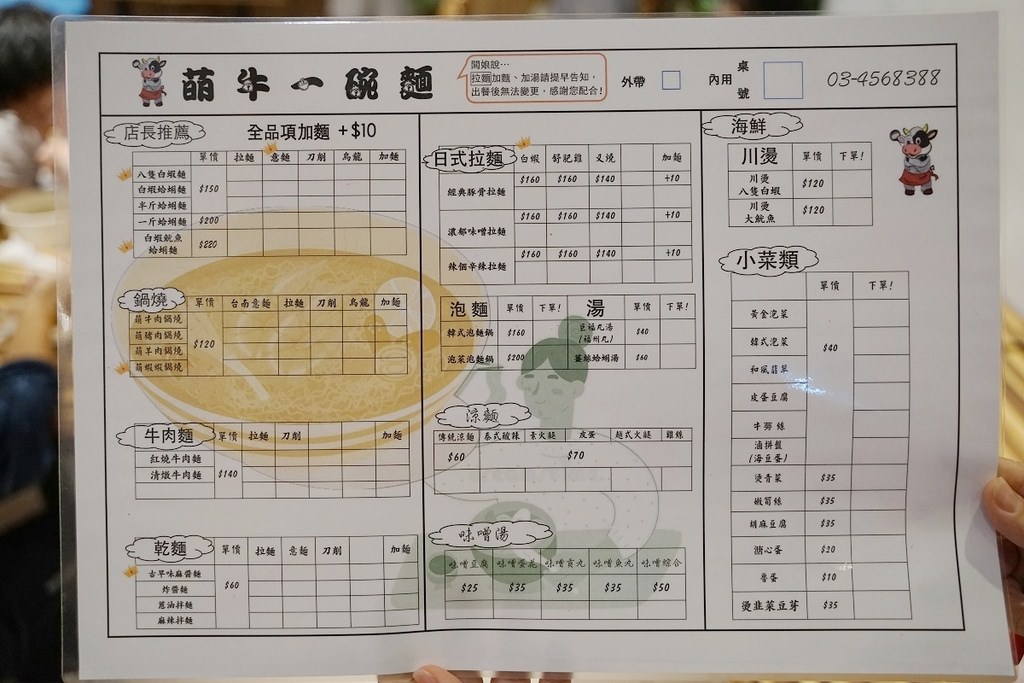 萌牛一碗麵
闆娘說…
拉麵加麵、加湯請提早告知，
出餐後無法變更，感謝您配合!
外帶
內用
桌
號
03-4568388
店長推薦
全品項加麵 +$10
單價 拉麵 意麵 刀削 烏龍 加麵
八隻白蝦麵
白蝦蛤蜊麵 $150
半斤蛤蜊麵
一斤蛤蜊麵 $200
白蝦魷魚
蛤蜊麵 $220
鍋燒
單價 台南意麵 拉麵 刀削 烏龍 加麵
萌牛肉鍋燒
萌豬肉鍋燒
萌羊肉鍋燒
萌蝦蝦鍋燒
$120
牛肉麵
單價 拉麵 刀削 加麵
紅燒牛肉麵
清燉牛肉麵
$140
乾麵
單價 拉麵 意麵 刀削 加麵
古早味麻醬麵
炸醬麵
蔥油拌麵
麻辣拌麵
$60
日式拉麵
白蝦 舒肥雞 叉燒 加麵
經典豚骨拉麵 $160 $160 $140 +10
濃郁味噌拉麵 $160 $160 $140 +10
辣個辛辣拉麵 $160 $160 $140 +10
泡麵 單價 下單!
韓式泡麵鍋 $160
泡菜泡麵鍋 $200
湯 單價 下單!
豆福丸湯
(福州丸) $40
薑絲蛤蜊湯 $60
涼麵
傳統涼麵 泰式酸辣 素火腿 皮蛋 越式火腿 雞絲
$60 $70
味噌湯
味噌豆腐 味噌蛋花 味噌貢丸 味噌魚丸 味噌綜合
$25 $35 $35 $35 $50
海鮮
川燙 單價 下單!
川燙
八隻白蝦 $120
川燙
大魷魚 $120
小菜類
單價 下單!
黃金泡菜
韓式泡菜
和風翡翠
皮蛋豆腐
牛蒡絲
滷拼盤
(海豆蛋)
$40
燙青菜 $35
嫩筍絲 $35
胡麻豆腐 $35
溏心蛋 $20
魯蛋 $10
燙韭菜豆芽 $35